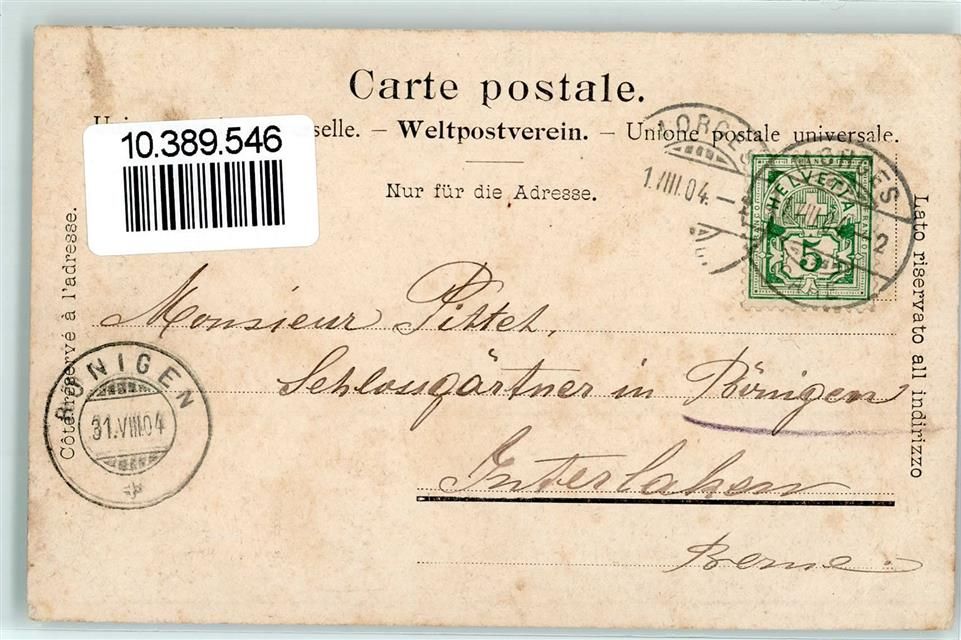 Carte postale.
10.389.546
selle. – Weltpostverein. – Unione postale universale.
Nur für die Adresse.
Côté réservé à l'adresse.
Lato riservato all indirizzo
MORGES
1.VIII.04.–
HELVETIA
FRANCO
5
2
Monsieur Pittet,
Schlossgärtner in Bönigen
Interlaken
Berne.
BÖNIGEN
31.VIII.04